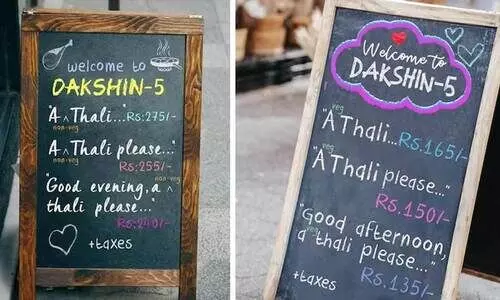 welcome to
DAKSHIN-5
"A ^ Thali... Rs:275/-
non-veg
"A ^ Thali please..."
non-veg
Rs:255/-
non-veg
"Good evening, a ^
thali please..."
Rs:240/-
+taxes
Welcome to
DAKSHIN-5
veg
"A Thali... Rs.165/-
veg
"A Thali please..."
Rs.150/-
"Good afternoon,
veg
a thali please..."
Rs.135/-
+taxes